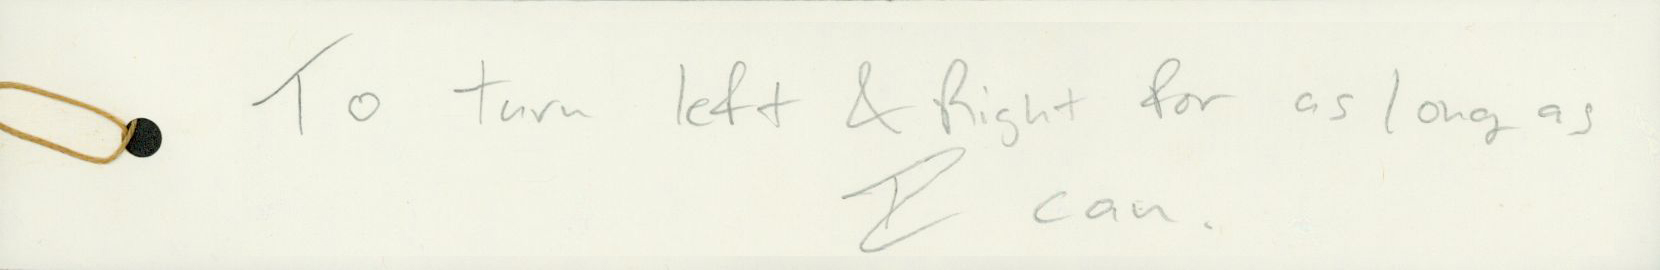 To turn left & Right for as long as
I can.